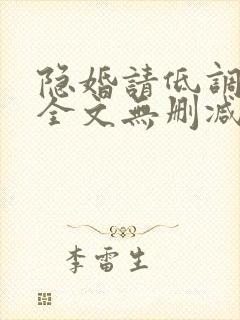 隐婚請低調
全文無删减
李雷生